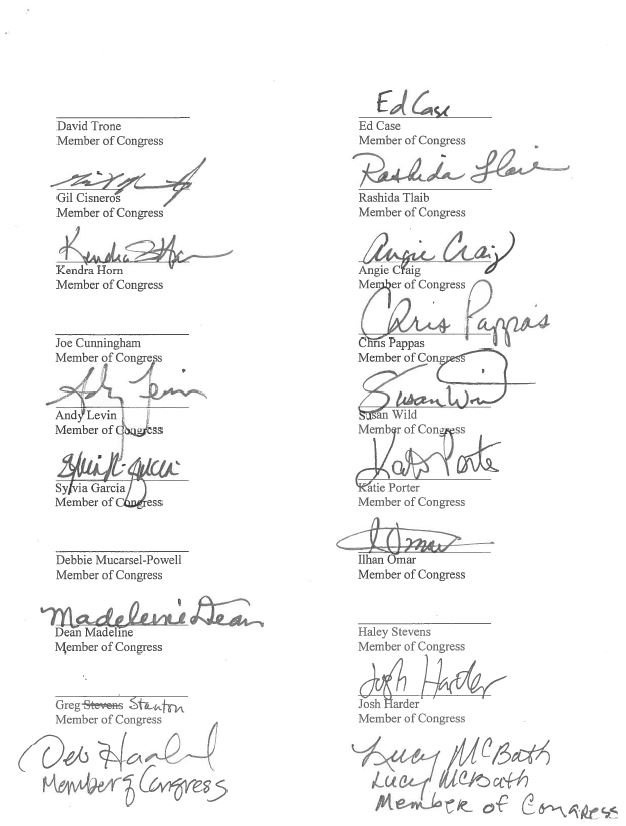 David Trone
Member of Congress
Gil Cisneros
Member of Congress
Kendra Horn
Kendra Horn
Member of Congress
Joe Cunningham
Member of Congress
Andy Levin
Andy Levin
Member of Congress
Sylvia R. Garcia
Sylvia Garcia
Member of Congress
Debbie Mucarsel-Powell
Member of Congress
Madeleine Dean
Dean Madeline
Member of Congress
Greg Stevens Stanton
Member of Congress
Deb Haaland
Member of Congress
Ed Case
Ed Case
Member of Congress
Rashida Tlaib
Rashida Tlaib
Member of Congress
Angie Craig
Angie Craig
Member of Congress
Chris Pappas
Chris Pappas
Member of Congress
Susan Wild
Susan Wild
Member of Congress
Katie Porter
Katie Porter
Member of Congress
I Omar
Ilhan Omar
Member of Congress
Haley Stevens
Member of Congress
Josh Harder
Josh Harder
Member of Congress
Lucy McBath
Lucy McBath
Member of Congress